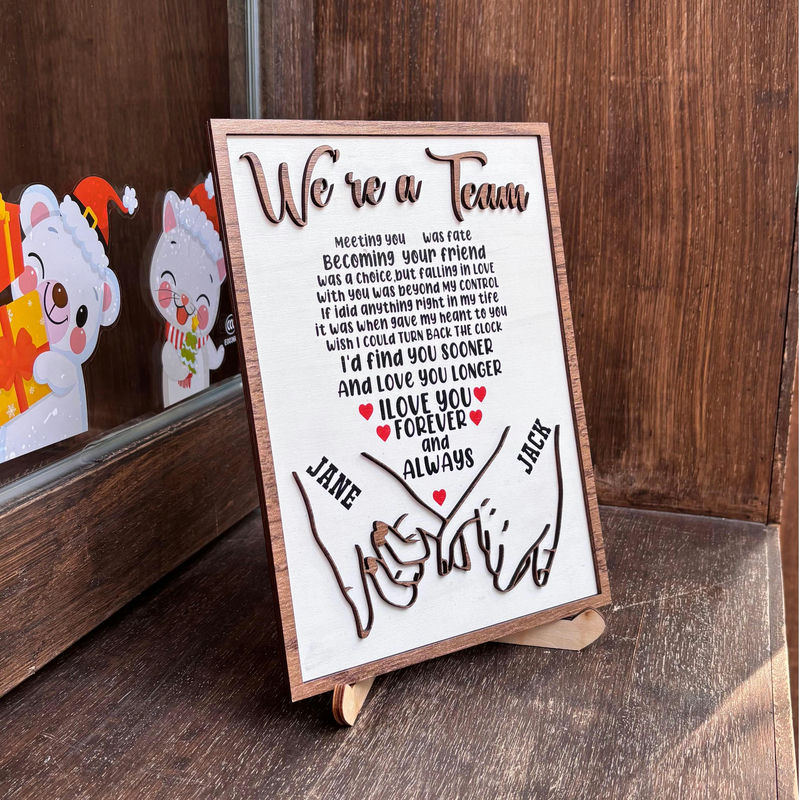 We're a Team
Meeting you was fate
Becoming your friend
was a choice,but falling in LOVE
with you was beyond MY CONTROL
If idid anything right in my tife
it was when gave my heant to you
wish I COULD TURN BACK THE CLOCK
I'd find you SOONER
And LOVE you LONGER
ILOVE YOU
FOREVER
and
ALWAYS
JANE
JACK